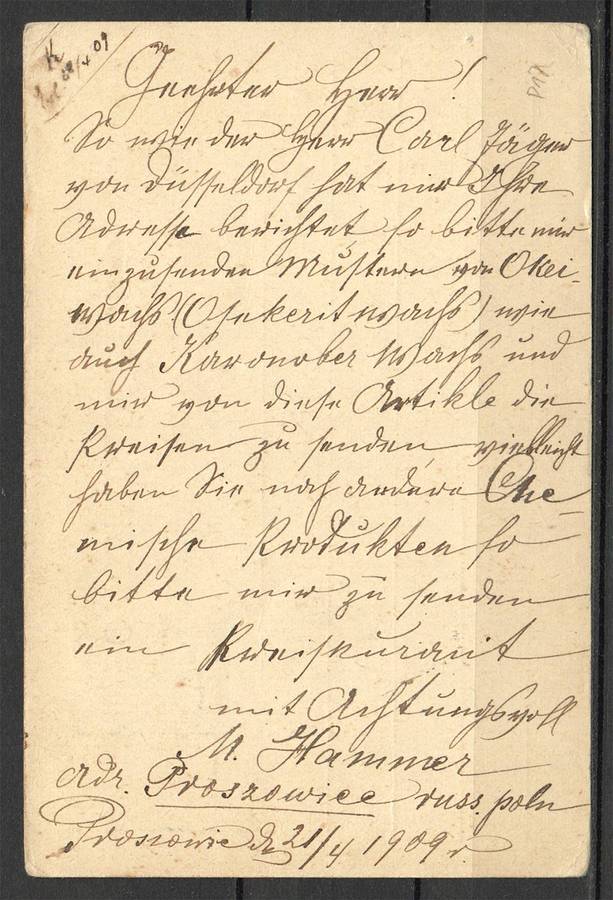 K
/4 09
P17
Geehrter Herr!
So wie der Herr Carl Jäger
von Düsseldorf hat mir Ihre
Adresse berichtet so bitte mir
einzusenden Mustern von Okei-
wachs (Osekerit wachs) wie
auch Karonober Wachs und
mir von diese Artikle die
Preisen zu senden vielleicht
haben Sie noch andere Che-
mische Produkten so
bitte mir zu senden
ein Preiskurant
mit Achtungsvoll
M. Hammer
Adr. Proszowice russ. poln
de 21/4 1909 r.